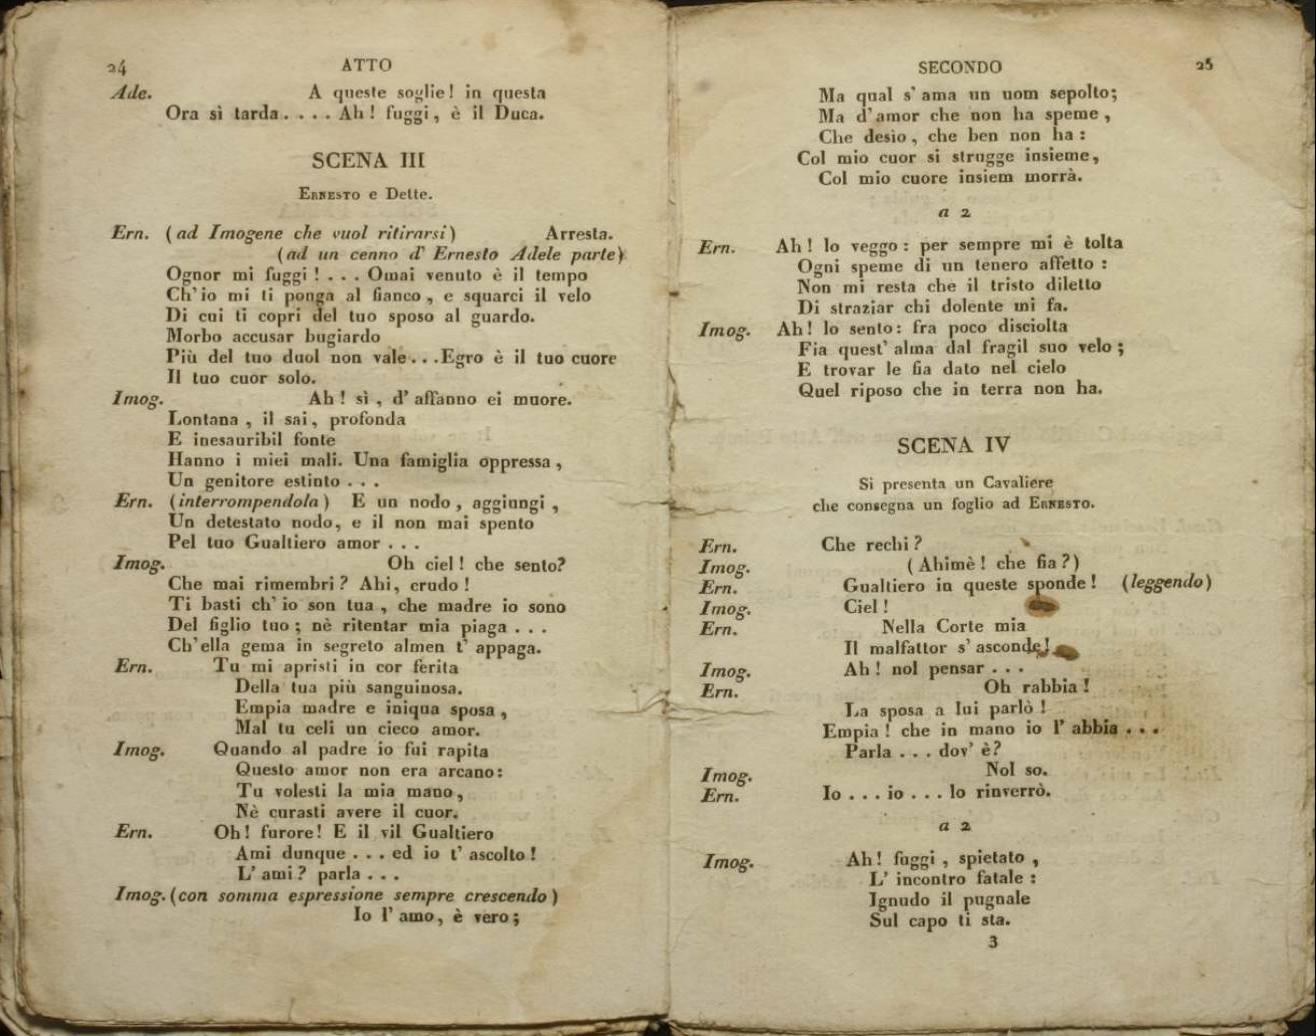 24 ATTO
Ade. A queste soglie! in questa
Ora sì tarda. . . . Ah! fuggi, è il Duca.
SCENA III
ERNESTO e Dette.
Ern. (ad Imogene che vuol ritirarsi) Arresta.
(ad un cenno d' Ernesto Adele parte)
Ognor mi fuggi! . . . Omai venuto è il tempo
Ch'io mi ti ponga al fianco, e squarci il velo
Di cui ti copri del tuo sposo al guardo.
Morbo accusar bugiardo
Più del tuo duol non vale . . . Egro è il tuo cuore
Il tuo cuor solo.
Imog. Ah! sì, d' affanno ei muore.
Lontana, il sai, profonda
E inesauribil fonte
Hanno i miei mali. Una famiglia oppressa,
Un genitore estinto . . .
Ern. (interrompendola) E un nodo, aggiungi,
Un detestato nodo, e il non mai spento
Pel tuo Gualtiero amor . . .
Imog. Oh ciel! che sento?
Che mai rimembri? Ahi, crudo!
Ti basti ch' io son tua, che madre io sono
Del figlio tuo; nè ritentar mia piaga . . .
Ch'ella gema in segreto almen t' appaga.
Ern. Tu mi apristi in cor ferita
Della tua più sanguinosa.
Empia madre e iniqua sposa,
Mal tu celi un cieco amor.
Imog. Quando al padre io fui rapita
Questo amor non era arcano:
Tu volesti la mia mano,
Nè curasti avere il cuor.
Ern. Oh! furore! E il vil Gualtiero
Ami dunque . . . ed io t' ascolto!
L' ami? parla . . .
Imog. (con somma espressione sempre crescendo)
Io l' amo, è vero;
SECONDO 25
Ma qual s' ama un uom sepolto;
Ma d' amor che non ha speme,
Che desìo, che ben non ha:
Col mio cuor si strugge insieme,
Col mio cuore insiem morrà.
a 2
Ern. Ah! lo veggo: per sempre mi è tolta
Ogni speme di un tenero affetto:
Non mi resta che il tristo diletto
Di straziar chi dolente mi fa.
Imog. Ah! lo sento: fra poco disciolta
Fia quest' alma dal fragil suo velo;
E trovar le fia dato nel cielo
Quel riposo che in terra non ha.
SCENA IV
Si presenta un Cavaliere
che consegna un foglio ad ERNESTO.
Ern. Che rechi?
Imog. (Ahimè! che fia?)
Ern. Gualtiero in queste sponde! (leggendo)
Imog. Ciel!
Ern. Nella Corte mia
Il malfattor s' asconde!
Imog. Ah! nol pensar . . .
Ern. Oh rabbia!
La sposa a lui parlò!
Empia! che in mano io l' abbia . . .
Parla . . . dov' è?
Imog. Nol so.
Ern. Io . . . io . . . lo rinverrò.
a 2
Imog. Ah! fuggi, spietato,
L' incontro fatale:
Ignudo il pugnale
Sul capo ti sta.
3